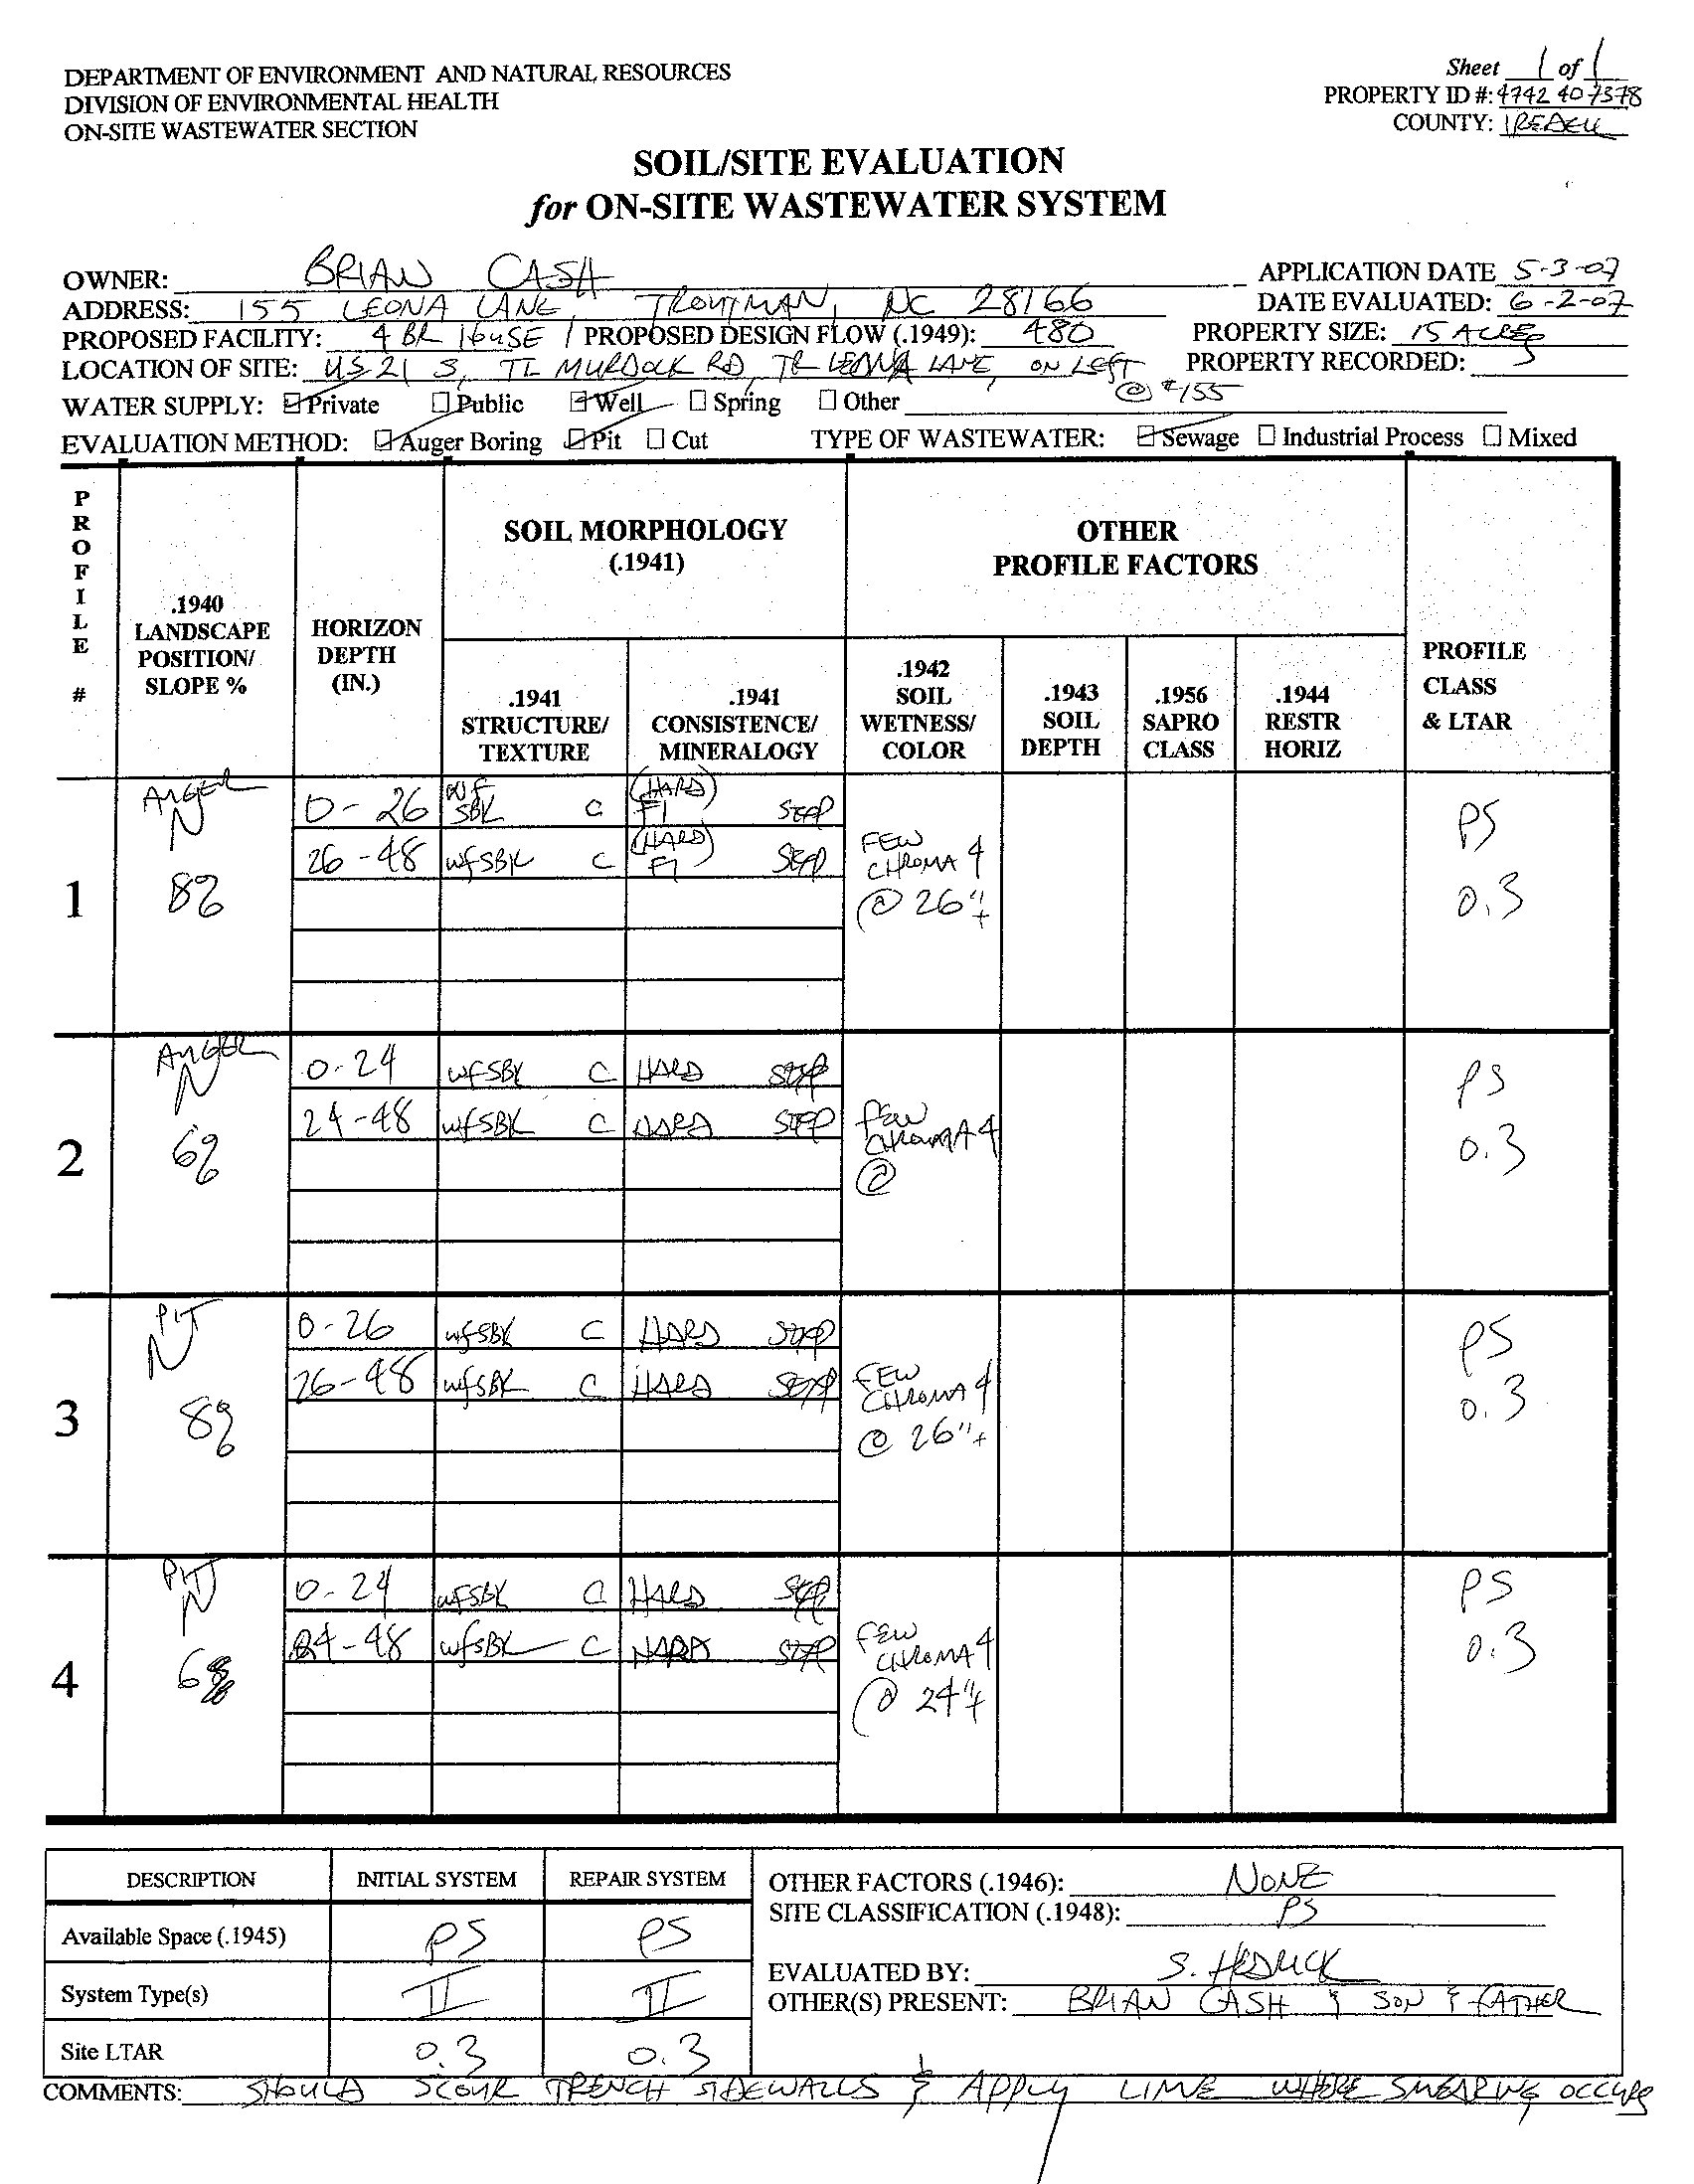 DEPARTMENT OF ENVIRONMENT AND NATURAL RESOURCES
DIVISION OF ENVIRONMENTAL HEALTH
ON-SITE WASTEWATER SECTION
Sheet 1 of 1
PROPERTY ID #: 4742 407378
COUNTY: IREDELL
SOIL/SITE EVALUATION
for ON-SITE WASTEWATER SYSTEM
OWNER: BRIAN CASH APPLICATION DATE 5-3-07
ADDRESS: 155 LEONA LANE, TROUTMAN, NC 28166 DATE EVALUATED: 6-2-07
PROPOSED FACILITY: 4 BR HOUSE PROPOSED DESIGN FLOW (.1949): 480 PROPERTY SIZE: 15 ACRES
LOCATION OF SITE: US 21 S, TL MURDOCK RD, TR LEONA LANE, ON LEFT PROPERTY RECORDED:
@ #155
WATER SUPPLY: Private Public Well Spring Other
EVALUATION METHOD: Auger Boring Pit Cut TYPE OF WASTEWATER: Sewage Industrial Process Mixed
PROFILE #
.1940 LANDSCAPE POSITION/ SLOPE %
HORIZON DEPTH (IN.)
SOIL MORPHOLOGY (.1941)
OTHER PROFILE FACTORS
.1941 STRUCTURE/ TEXTURE
.1941 CONSISTENCE/ MINERALOGY
.1942 SOIL WETNESS/ COLOR
.1943 SOIL DEPTH
.1956 SAPRO CLASS
.1944 RESTR HORIZ
PROFILE CLASS & LTAR
1
AUGER N 8%
0-26 wf SBK C (HARD) FI SEXP
26-48 wfSBK C (HARD) FI SEXP
FEW CHROMA 4 @ 26"+
PS 0.3
2
AUGER N 6%
0-24 wfSBK C HARD SEXP
24-48 wfSBK C HARD SEXP
FEW CHROMA 4 @
PS 0.3
3
PIT N 8%
0-26 wfSBK C HARD SEXP
26-48 wfSBK C HARD SEXP
FEW CHROMA 4 @ 26"+
PS 0.3
4
PIT N 6%
0-24 wfSBK C HARD SEXP
24-48 wfSBK C HARD SEXP
FEW CHROMA 4 @ 24"+
PS 0.3
DESCRIPTION INITIAL SYSTEM REPAIR SYSTEM
Available Space (.1945) PS PS
System Type(s) II II
Site LTAR 0.3 0.3
OTHER FACTORS (.1946): NONE
SITE CLASSIFICATION (.1948): PS
EVALUATED BY: S. HEDRICK
OTHER(S) PRESENT: BRIAN CASH & SON & FATHER
COMMENTS: SHOULD SCOUR TRENCH SIDEWALLS & APPLY LIME WHERE SMEARING OCCURS